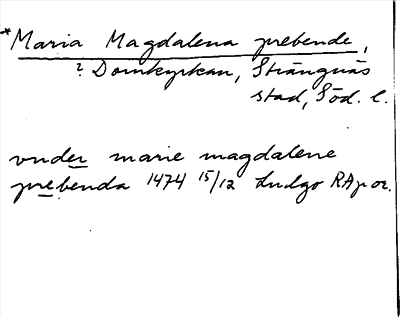 *Maria Magdalena prebende,
? Domkyrkan, Strängnäs
stad, Söd. l.
vnder marie magdalene
prebenda 1474 15/12 Ludgo RAp or.